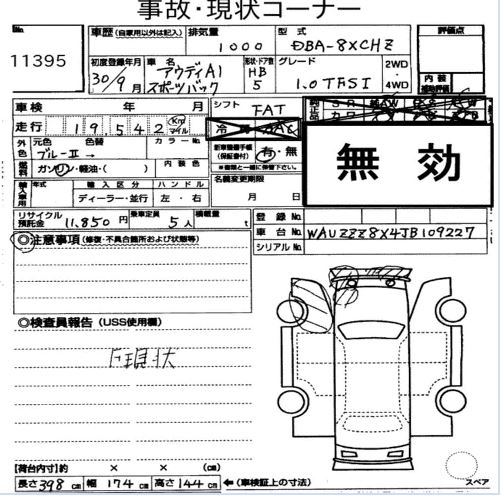 事故・現状コーナー
No.
11395
車歴 (自家用以外は記入)
排気量 1000
型式 DBA-8XCHZ
評価点
初度登録年月 30/9月
車名 アウディA1 スポーツバック
形状・ドア数 HB 5
グレード 1.0 TFSI
2WD・4WD
内装
補助評価
車検 年 月
シフト FAT
走行 19,542 Km マイル
冷房 AAC
外色 元色 ブルーII 色替 →
カラーNo.
新車整備手帳 (保証書付) 有・無
※書類と一緒に保管下さい。
無効
燃料 ガソリン・軽油・( )
内装色
名義変更期限
月 日
輸入車用 年式 輸入区分 ディーラー・並行 ハンドル 左・右
リサイクル預託金 11,850円
乗車定員 5人
積載量 t
登録No.
車台No. WAUZZZ8X4JB109227
シリアルNo.
◎注意事項 (修復・不具合箇所および状態等)
◎検査員報告 (USS使用欄)
現状
【荷台内寸】約 × × (cm)
長さ 398 cm 幅 174 cm 高さ 144 cm ←(車検証上の寸法)
スペア